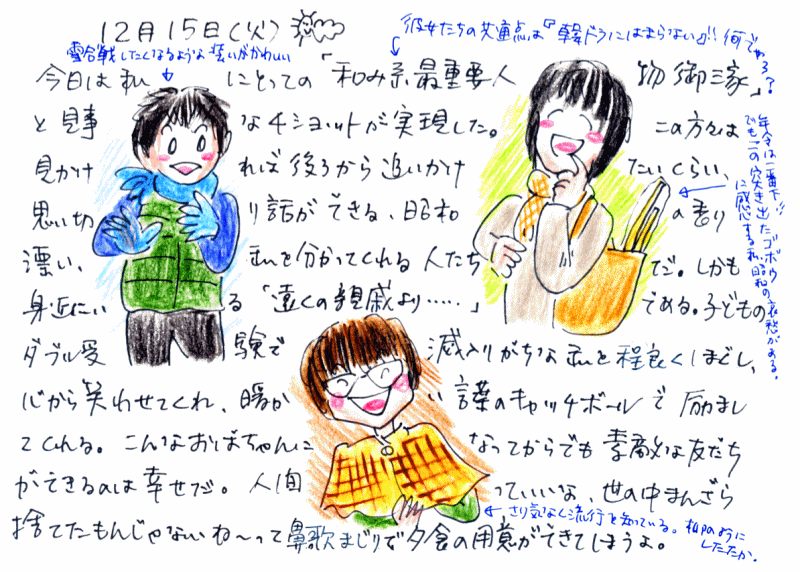 12月15日(火)
彼女たちの共通点は『韓ドラにはまらない』!! 何でやろ?
雪合戦したくなるような装いがかわいい
今日は私にとっての「和み系最重要人物御三家」
と見事な4ショットが実現した。この方々は
見かければ後ろから追いかけたいくらい、
思い切り話ができる、昭和の香り
漂い、私を分かってくれる人たちだ。しかも
身近にいる「遠くの親戚より……」である。子どもの
ダブル受験で滅入りがちな私を程良くほぐし、
心から笑わせてくれ、暖かい言葉のキャッチボールで励まし
てくれる。こんなおばちゃんになってからでも素敵な友だち
ができるのは幸せだ。人間っていいな、世の中まんざら
捨てたもんじゃないね〜って鼻歌まじりで夕食の用意ができてしまうよ。
年令は一番下!!
でもこの突き出たゴボウ
に感心する私。昭和の哀愁がある。
さり気なく流行を知っている。私のように
したたか。